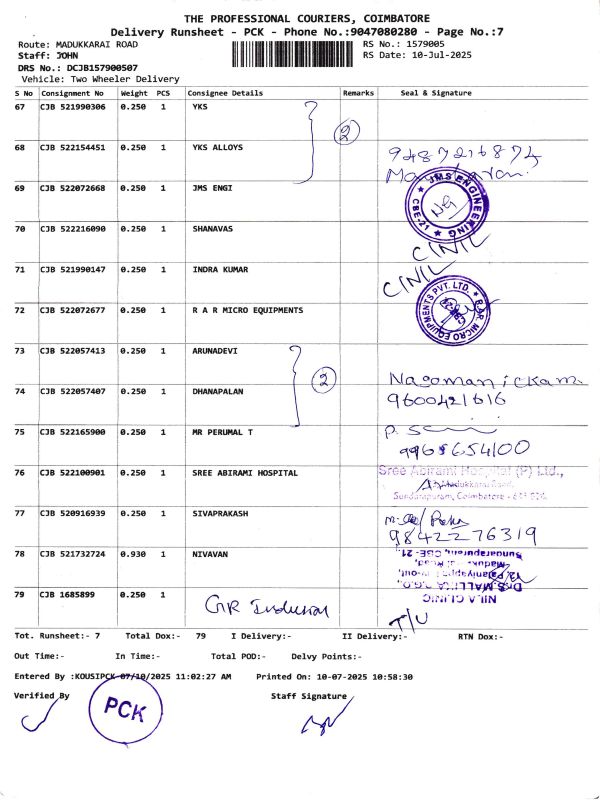 THE PROFESSIONAL COURIERS, COIMBATORE
Delivery Runsheet - PCK - Phone No.:9047080280 - Page No.:7
Route: MADUKKARAI ROAD RS No.: 1579005
Staff: JOHN RS Date: 10-Jul-2025
DRS No.: DCJB157900507
Vehicle: Two Wheeler Delivery
S No Consignment No Weight PCS Consignee Details Remarks Seal & Signature
67 CJB 521990306 0.250 1 YKS
2
68 CJB 522154451 0.250 1 YKS ALLOYS 9487216874
69 CJB 522072668 0.250 1 JMS ENGI
JMS ENGINEERING ★ CBE-21 ★
70 CJB 522216090 0.250 1 SHANAVAS
71 CJB 521990147 0.250 1 INDRA KUMAR
72 CJB 522072677 0.250 1 R A R MICRO EQUIPMENTS
R.A.R. MICRO EQUIPMENTS PVT. LTD. ★
73 CJB 522057413 0.250 1 ARUNADEVI
2 Nagomanickam
74 CJB 522057407 0.250 1 DHANAPALAN 9600421616
75 CJB 522165900 0.250 1 MR PERUMAL T
9965654100
76 CJB 522100901 0.250 1 SREE ABIRAMI HOSPITAL Sree Abirami Hospital (P) Ltd.,
Madukkarai Road,
Sundarapuram, Coimbatore - 641 024.
77 CJB 520916939 0.250 1 SIVAPRAKASH
9842276319
78 CJB 521732724 0.930 1 NIVAVAN
Sundarapuram, CBE - 21.
NILA CLINIC
79 CJB 1685899 0.250 1 GR Industrial
Tot. Runsheet:- 7 Total Dox:- 79 I Delivery:- II Delivery:- RTN Dox:-
Out Time:- In Time:- Total POD:- Delvy Points:-
Entered By :KOUSIPCK-07/10/2025 11:02:27 AM Printed On: 10-07-2025 10:58:30
Verified By Staff Signature
PCK